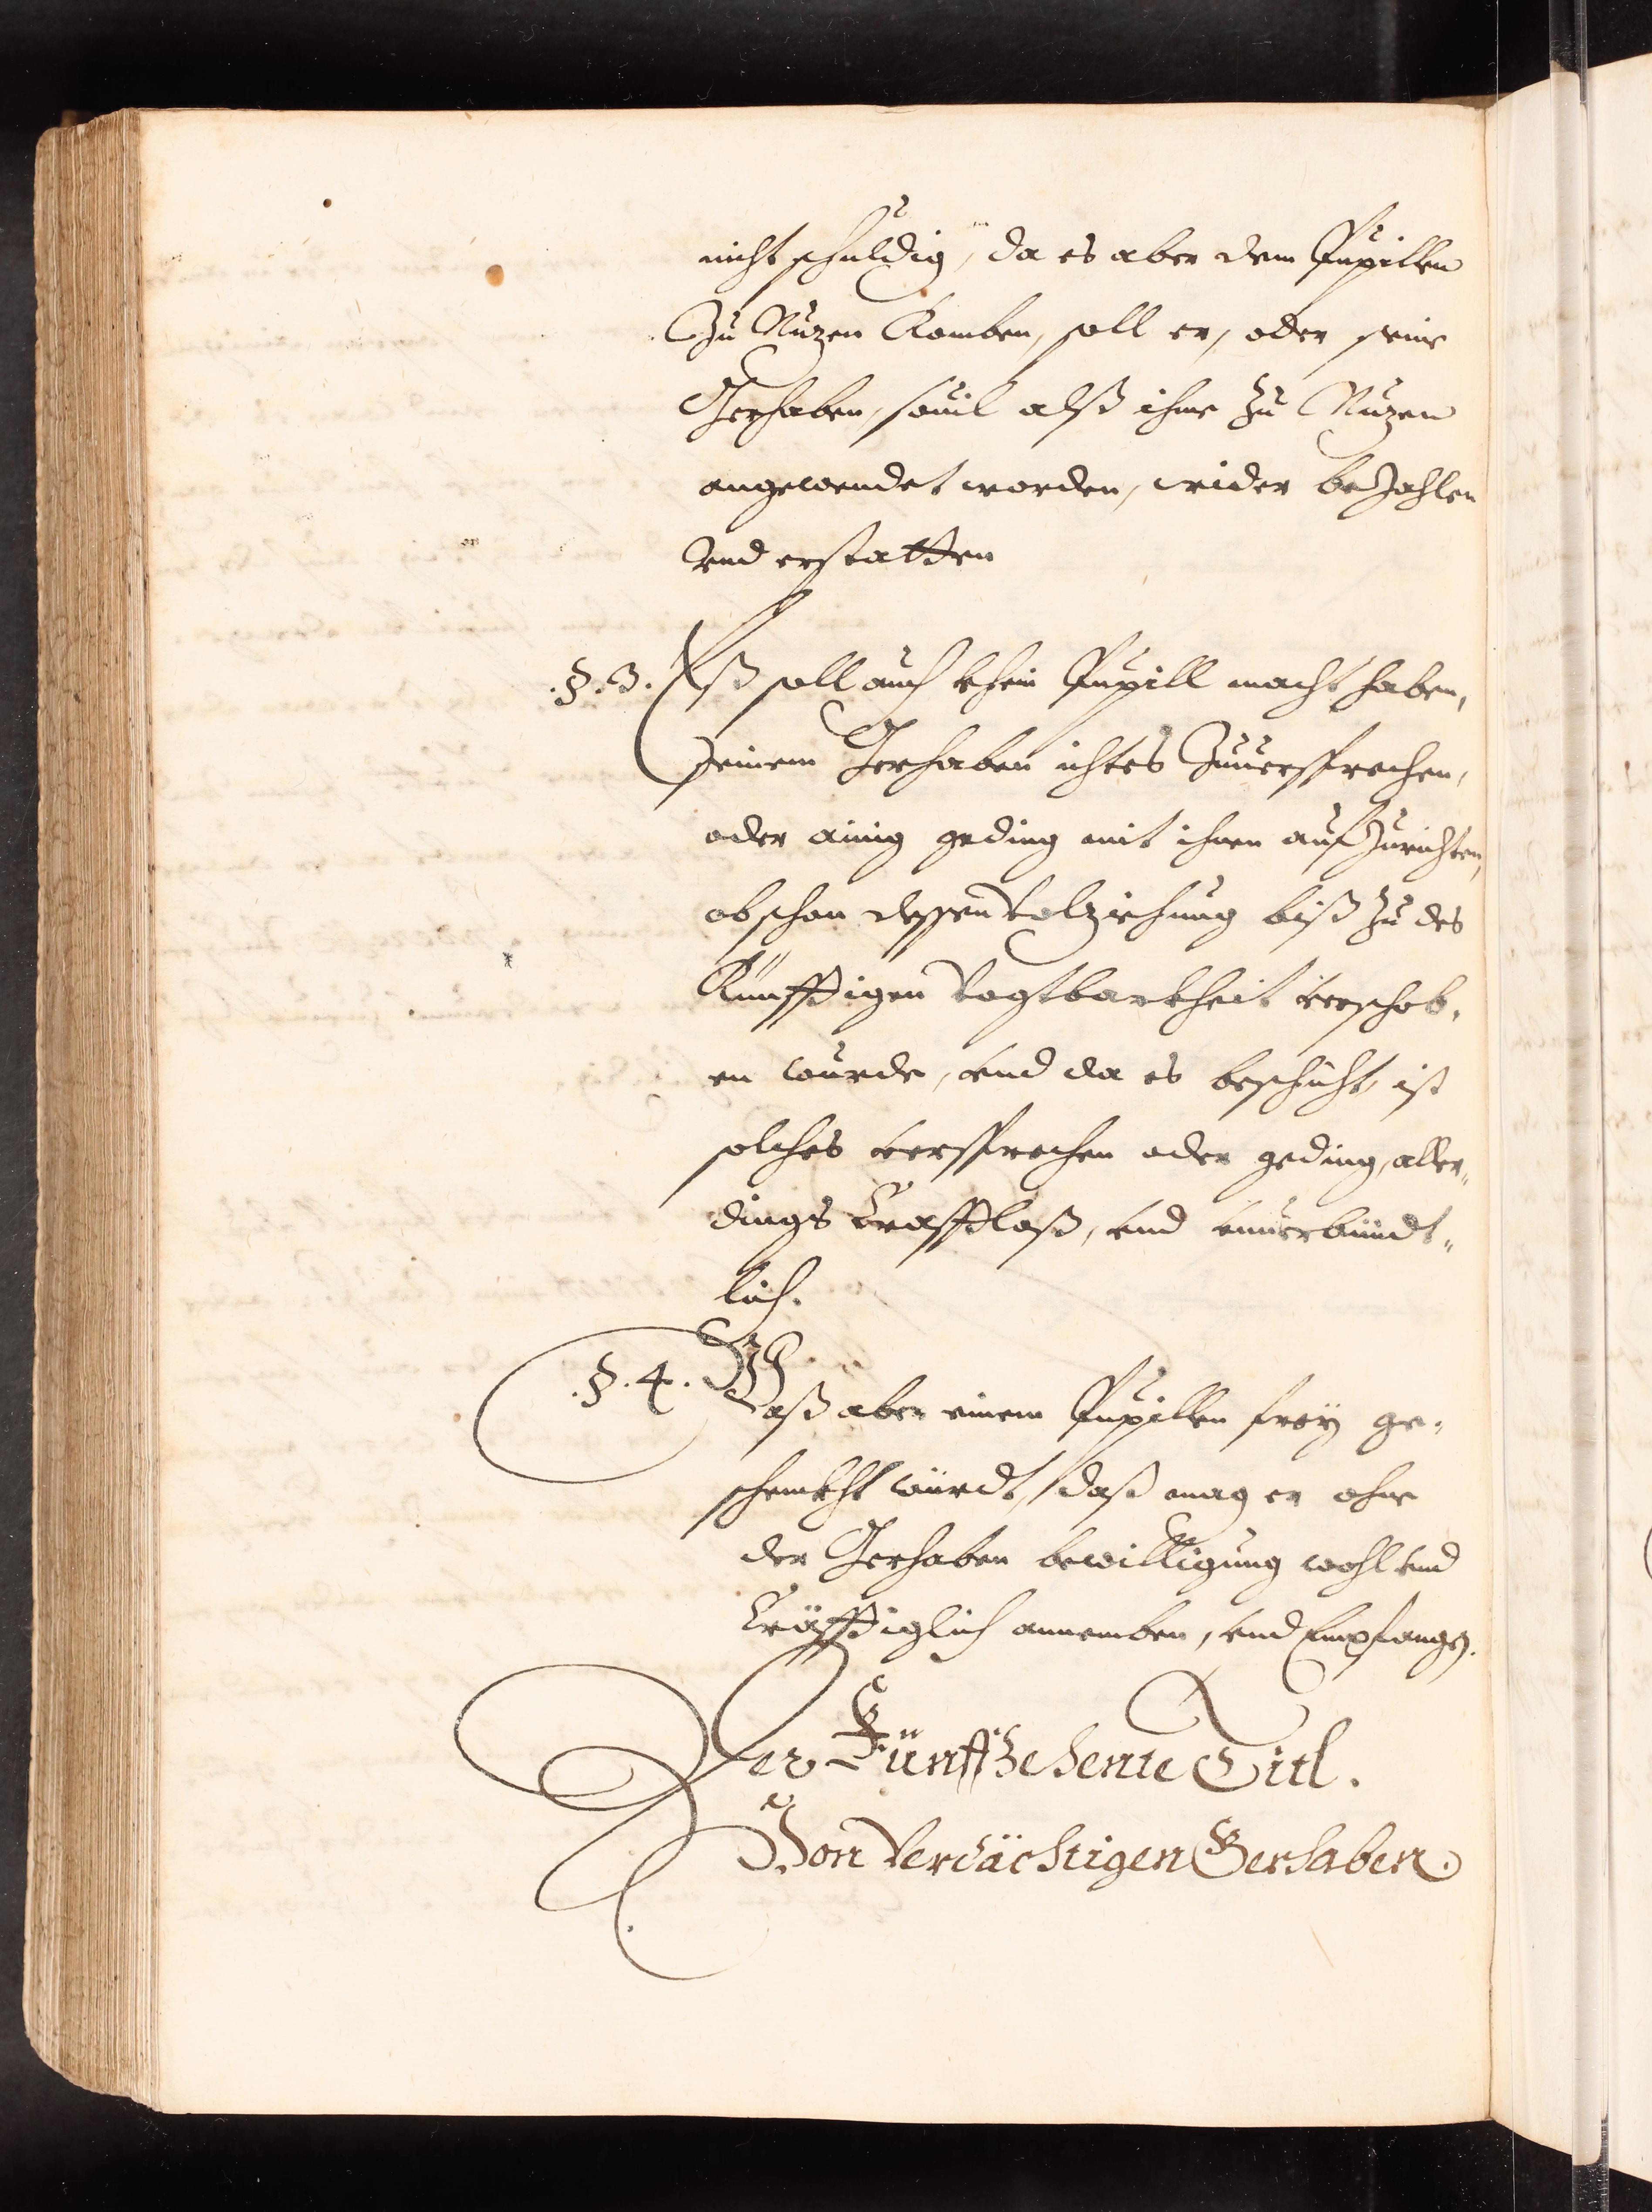 nicht schuldig, da es aber dem Pupillen
Zu Nuzen komben, soll er, oder seine
Gerhaben, souil alß ihme zu Nuzen
angewendet worden, wider bezahlen
vnd erstatten
.§.3. Eß soll auch khein Pupill macht haben,
seinem Gerhaben ichtes Zuuersprechen,
oder ainig geding mit ihnen aufzurichten,
ob schon dessen volziehung biß zu des
Künfftigen Vogtbarkheit verschob„
en wurde, vnd da es beschicht, ist
solches versprechen oder geding, aller„
dings krafftloß, vnd vnuerbündt„
lich.
.§.4. Waß aber einem Pupillen freÿ ge„
schenkht würdt, daß mag er ohne
der Gerhaben bewilligung wohl vnd
kräfftiglich annemben, vnd Empfangen.
Der Fünffzehente Titl.
Von Verdächtigen Gerhaben.